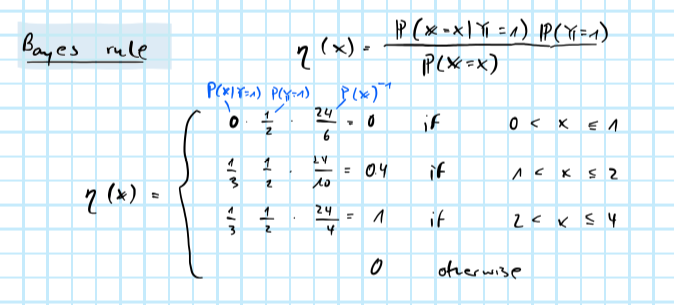 Bayes rule
η(x) = P(X=x|Y=1) P(Y=1) / P(X=x)
P(x|Y=1) P(Y=1) P(x)⁻¹
η(x) = {
0 · 1/2 · 24/6 = 0 if 0 < x ≤ 1
1/3 1/2 · 24/10 = 0.4 if 1 < x ≤ 2
1/3 1/2 · 24/4 = 1 if 2 < x ≤ 4
0 otherwise